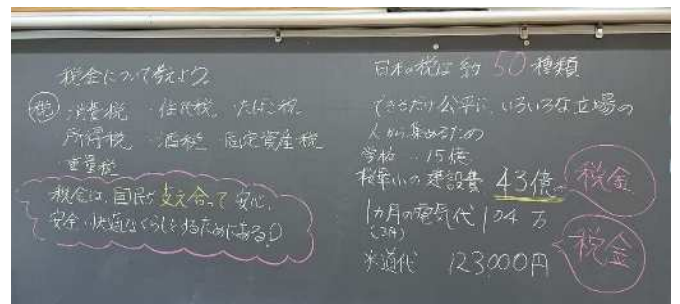 税金について考えよう
税 ・消費税 ・住民税 ・たばこ税
所得税 ・酒税 固定資産税
重量税
税金は、国民が支え合って 安心、
安全、快適なくらしをするためにある!
日本の税は約50種類
できるだけ公平に、いろいろな立場の
人から集めるため
学校 ・・15億
の建設費 43億 税金
1カ月の電気代 104万
(2月)
水道代 123000円 税金